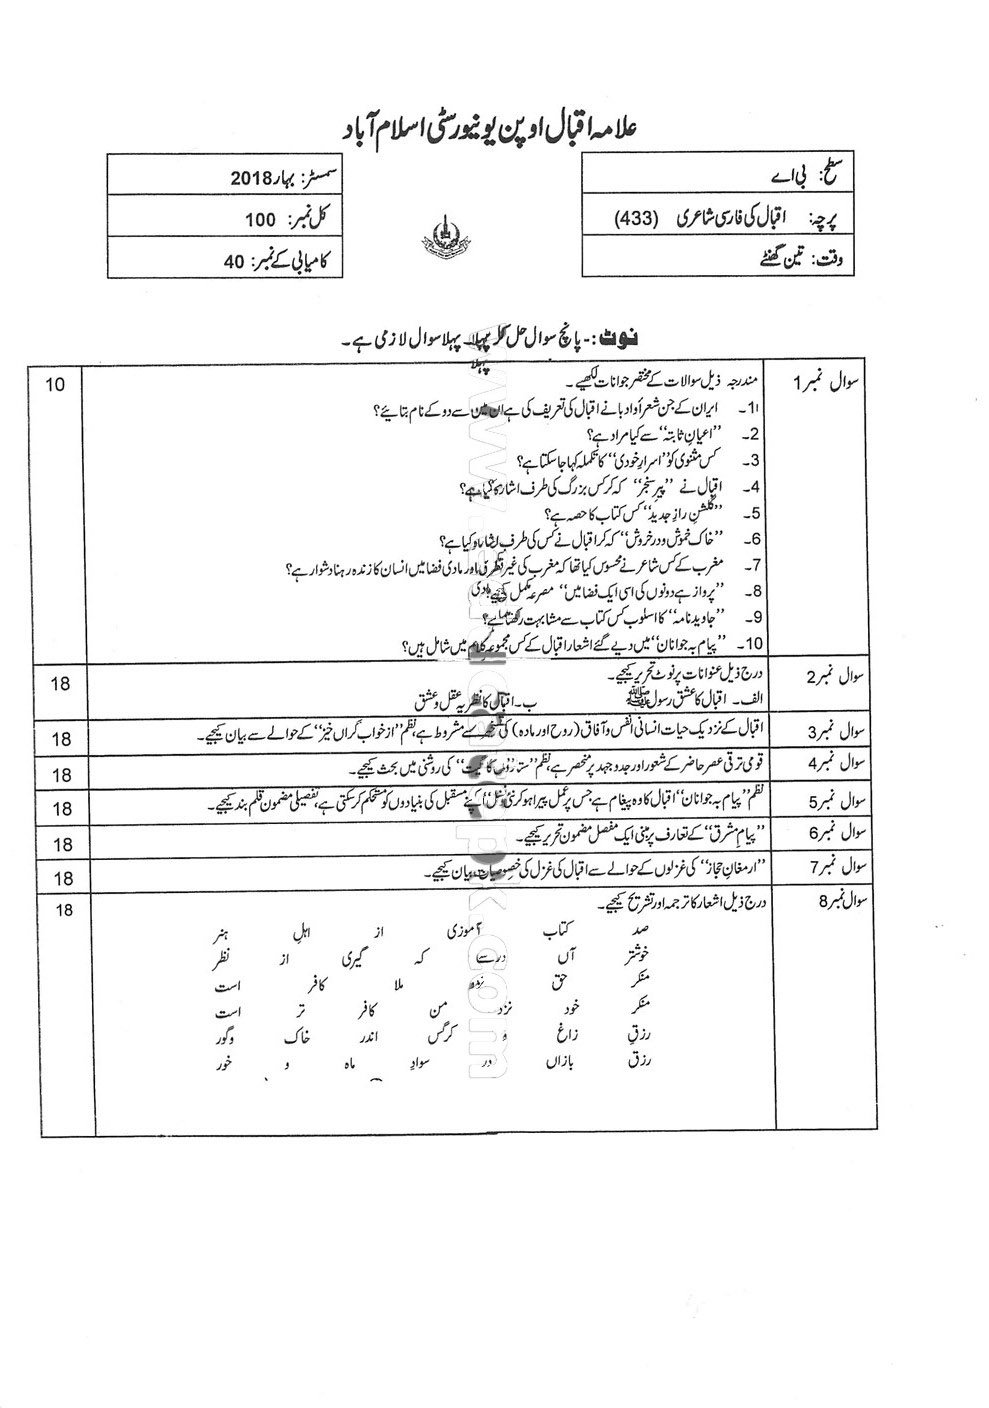 علامہ اقبال اوپن یونیورسٹی اسلام آباد
سطح: بی اے
پرچہ: اقبال کی فارسی شاعری (433)
وقت: تین گھنٹے
سمسٹر: بہار 2018
کل نمبر: 100
کامیابی کے نمبر: 40
نوٹ:- پانچ سوال حل کر پہلا۔ پہلا سوال لازمی ہے۔
پہلا
سوال نمبر 1 مندرجہ ذیل سوالات کے مختصر جوانات لکھیے۔ 10
1۔ ایران کے جن شعرأ و ادبا نے اقبال کی تعریف کی ہے ان میں سے دو کے نام بتائیے؟
2۔ ”اعیانِ ثابتہ“ سے کیا مراد ہے؟
3۔ کس مثنوی کو ”اسرارِ خودی“ کا تکملہ کہا جا سکتا ہے؟
4۔ اقبال نے ”پیرِ سنجر“ کہہ کر کس بزرگ کی طرف اشارہ کیا ہے؟
5۔ ”گلشنِ رازِ جدید“ کس کتاب کا حصہ ہے؟
6۔ ”خاک خموش و در خروش“ کہہ کر اقبال نے کس کی طرف اشارہ کیا ہے؟
7۔ مغرب کے کس شاعر نے محسوس کیا تھا کہ مغرب کی غیر فطری اور مادی فضا میں انسان کا زندہ رہنا دشوار ہے؟
8۔ ”پرواز ہے دونوں کی اسی ایک فضا میں“ مصرعہ مکمل کیجیے
9۔ ”جاوید نامہ“ کا اسلوب کس کتاب سے مشابہت رکھتا ہے؟
10۔ ”پیام بہ جوانان“ میں دیے گئے اشعار اقبال کے کس مجموعہ کلام میں شامل ہیں؟
سوال نمبر 2 درج ذیل عنوانات پر نوٹ تحریر کیجیے۔ 18
الف۔ اقبال کا عشق رسول ﷺ ب۔ اقبال کا نظریہ عقل و عشق
سوال نمبر 3 اقبال کے نزدیک حیات انسانی انفس و آفاق (روح اور مادہ) کی تسخیر سے مشروط ہے، نظم ”از خواب گراں خیز“ کے حوالے سے بیان کیجیے۔ 18
سوال نمبر 4 قومی ترقی عصر حاضر کے شعور اور جدوجہد پر منحصر ہے، نظم ”ستاروں کا گیت“ کی روشنی میں بحث کیجیے۔ 18
سوال نمبر 5 نظم ”پیام بہ جوانان“ اقبال کا وہ پیغام ہے، جس پر عمل پیرا ہو کر نئی نسل اپنے مستقبل کی بنیادوں کو مستحکم کر سکتی ہے، تفصیلی مضمون قلم بند کیجیے۔ 18
سوال نمبر 6 ”پیامِ مشرق“ کے تعارف پر مبنی ایک مفصل مضمون تحریر کیجیے۔ 18
سوال نمبر 7 ”ارمغانِ حجاز“ کی غزلوں کے حوالے سے اقبال کی غزل کی خصوصیات بیان کیجیے۔ 18
سوال نمبر 8 درج ذیل اشعار کا ترجمہ اور تشریح کیجیے۔ 18
صد کتاب آموزی از اہلِ ہنر
خوشتر آں درسے کہ گیری از نظر
منکر حق نزد ملا کافر است
منکر خود نزد من کافر تر است
رزقِ زاغ و کرگس اندر خاک و گور
رزق بازاں در سوادِ ماہ و خور